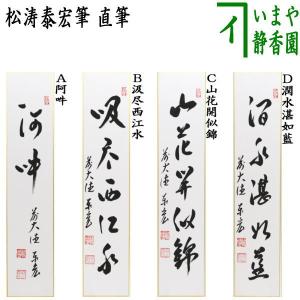 松涛泰宏筆 直筆
いまや
静香園
A阿吽
B汲尽西江水
C山花開似錦
D澗水湛如藍
阿吽
吸尽西江水
山花開似錦
澗水湛如藍